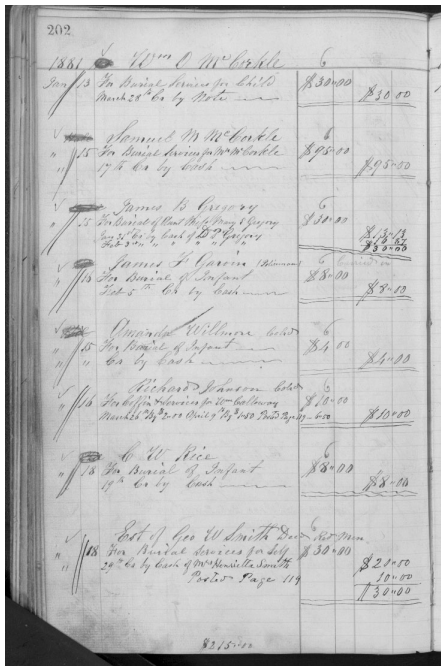 202
1881 Wm O McCorkle 6
Jan 13 For Burial Services for Child $30.00
March 28th Cr by Note $30.00
Samuel M McCorkle 6
" 15 For Burial Services for Mrs McCorkle $95.00
" 17th Cr by Cash $95.00
James B Gregory 6
" 15 For Burial of Gregory $30.00
Cr by Cash of Gregory $13.13
Feb 3rd " " " "
$30.00
James F 6
" 15 For Burial of Infant $8.00
Feb 5th Cr by Cash $8.00
Amanda Willmore Cold 6
" 15 For Burial of Infant $4.00
" " Cr by Cash $4.00
Richard Johnson Cold 6
" 16 For Coffin & Services for Wm Calloway $10.00
March 26th By $2.00 April 9th By $1.50 Post Page 119 - 6.50 $10.00
C W Rice 6
" 18 For Burial of Infant $8.00
" 19th Cr by Cash $8.00
Est of Geo W Smith Decd Red Men 6
" 18 For Burial Services for Self $30.00
" 29th Cr by Cash of Mrs Henrietta Smith $20.00
Posted Page 119 10.00
$30.00
$215.00